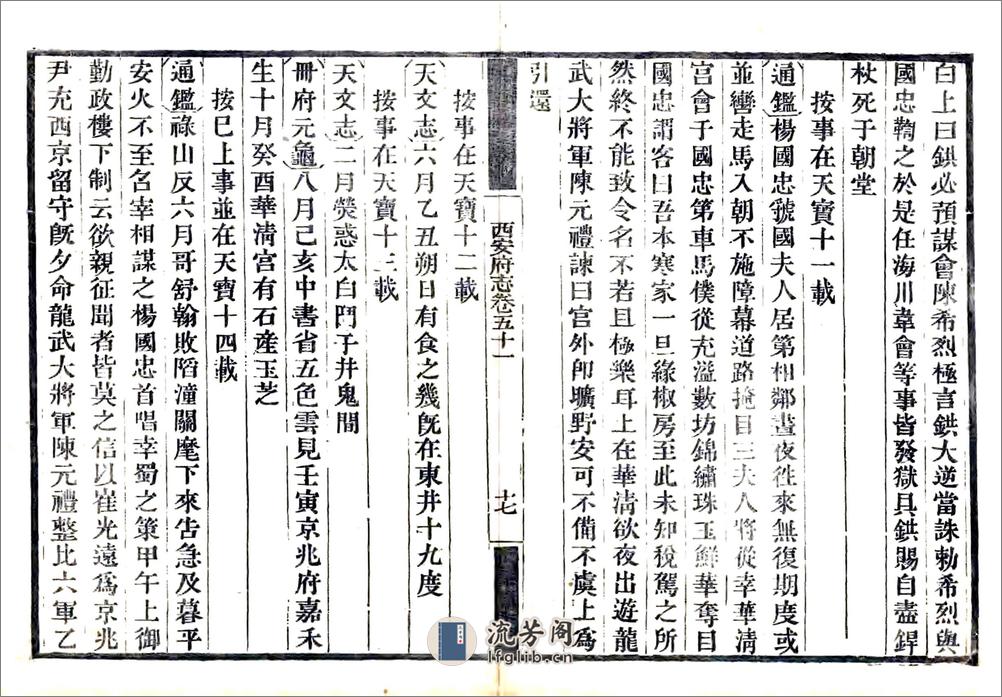 白上曰鉷必預謀會陳希烈極言鉷大逆當誅勅希烈與
國忠鞫之於是任海川韋會等事皆發獄具鉷賜自盡銲
杖死于朝堂
按事在天寶十一載
通鑑楊國忠虢國夫人居第相鄰晝夜徃來無復期度或
並轡走馬入朝不施障幕道路掩目三夫人將從幸華淸
宫會于國忠第車馬僕從充溢數坊錦繡珠玉鮮華奪目
國忠謂客曰吾本寒家一旦緣椒房至此未知稅駕之所
然終不能致令名不若且極樂耳上在華淸欲夜出遊龍
武大將軍陳元禮諫曰宫外卽曠野安可不備不虞上爲
引還
西安府志卷五十一
十七
按事在天寶十二載
天文志六月乙丑朔日有食之幾旣在東井十九度
按事在天寶十三載
天文志二月熒惑太白鬥于井鬼間
冊府元龜八月己亥中書省五色雲見壬寅京兆府嘉禾
生十月癸酉華淸宫有石產玉芝
按巳上事並在天寶十四載
通鑑祿山反六月哥舒翰敗䧟潼關麾下來告急及暮平
安火不至召宰相謀之楊國忠首唱幸蜀之策甲午上御
勤政樓下制云欲親征聞者皆莫之信以崔光遠爲京兆
尹充西京留守旣夕命龍武大將軍陳元禮整比六軍乙
流芳阁
lfglib.cn